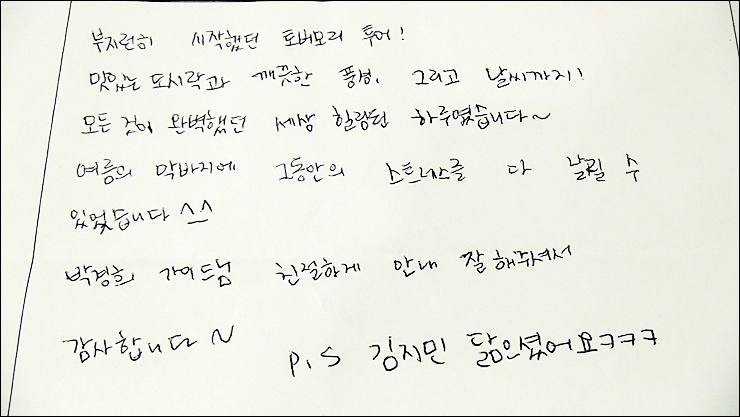 부지런히 시작했던 토버모리 투어!
맛있는 도시락과 깨끗한 풍경, 그리고 날씨까지!
모든 것이 완벽했던 세상 힐링된 하루였습니다~
여름의 막바지에 그동안의 스트레스를 다 날릴 수
있었습니다 ^^
박경희 가이드님 친절하게 안내 잘 해주셔서
감사합니다~ P.S 김지민 닮으셨어요ㅋㅋㅋ